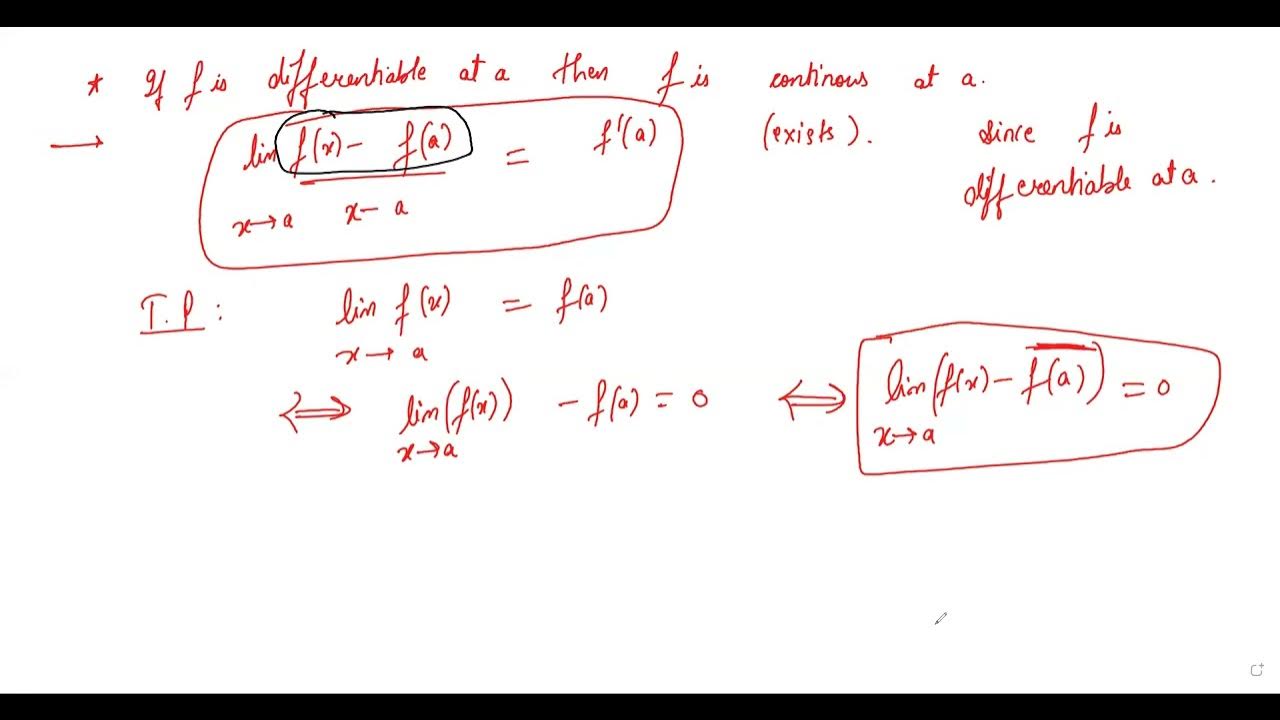 * If f is differentiable at a then f is continous at a.
→ lim x→a f(x) - f(a) / x - a = f'(a) (exists). since f is
differentiable at a.
T.P : lim x→a f(x) = f(a)
⟺ lim x→a (f(x)) - f(a) = 0 ⟺ lim x→a (f(x) - f(a)) = 0